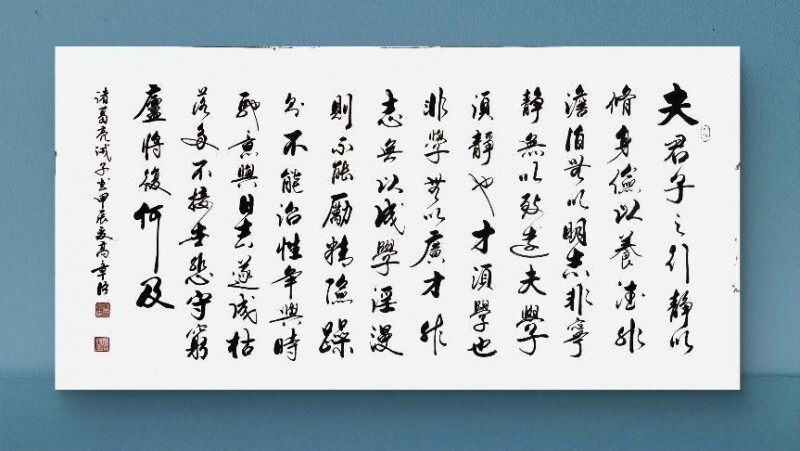 夫君子之行静以
脩身儉以養德非
澹泊無以明志非寧
静無以致遠夫學
須静也才須學也
非學無以廣才非
志無以成學淫漫
則不能勵精險躁
則不能治性年與時
馳意與日去遂成枯
落多不接世悲守窮
廬將復何及
诸葛亮诫子书甲辰夏高章